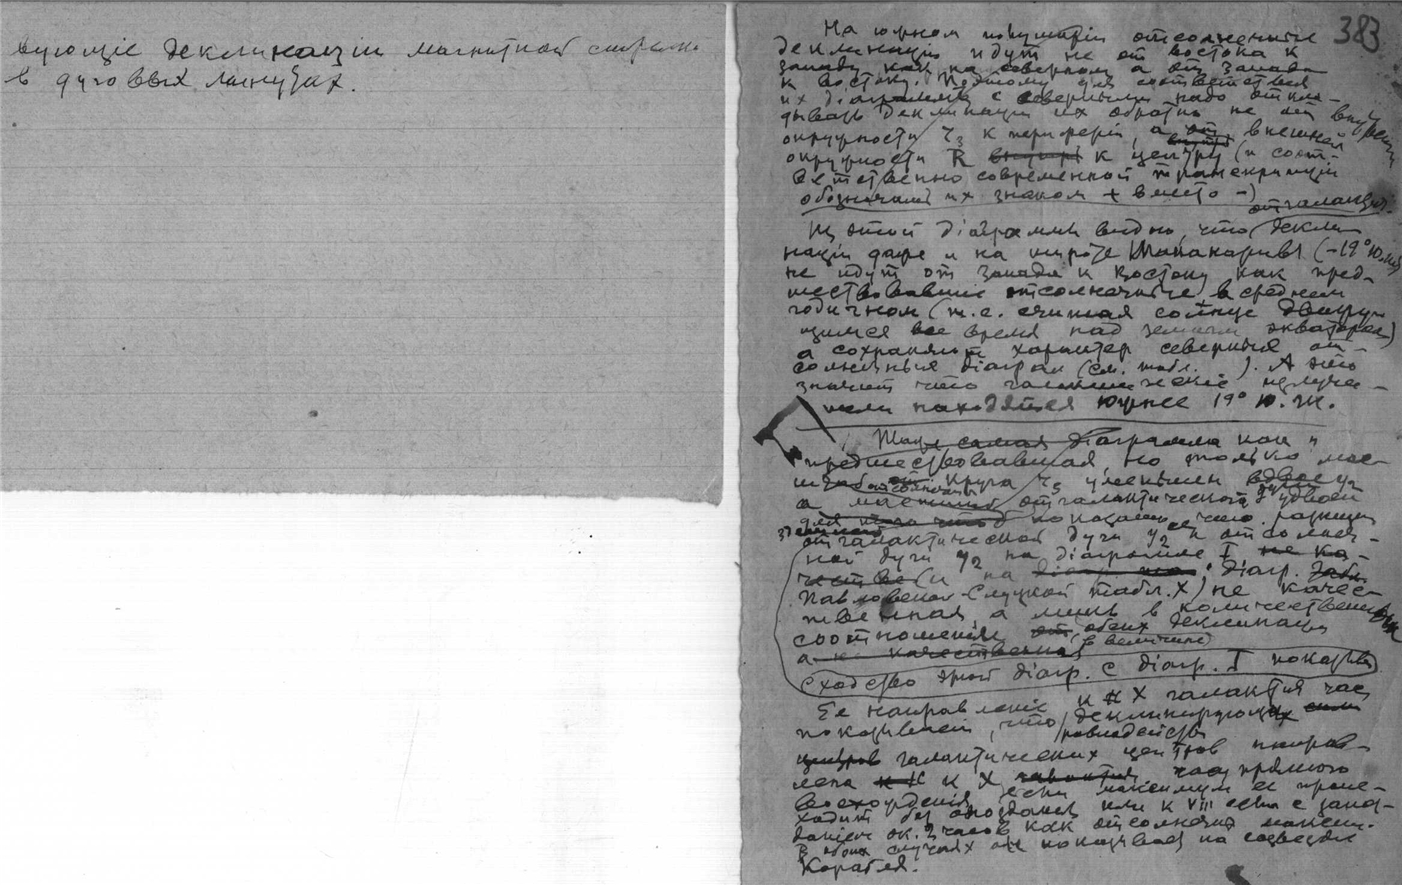 вующіе деклинаціи магнитной стрелки
в дуговых минутах.
383
На южном полушаріи отсолнечные
деклинаціи идут не от востока к
западу как на северном а от запада
к востоку. Поэтому для соответствія
их діаграммы с северными надо откла-
дывать деклинаціи их обратно не от внутренней
окружности r₃ к периферіи, а от внешней
окружности R к центру (и соот-
ветственно современной транскрипціи
обозначать их знаком + вместо -)
Из этой діаграммы видно, что отгалактич. декли-
націи даже и на широте Тананаривы (-19° Ю.Ш)
не идут от запада к востоку как пред-
шествовавшіе отсолнечные в среднем
годичном (т.е. считая солнце движу-
щимся все время над земным экватором)
а сохраняют характер северных от-
солнечных діаграм (см. табл. ). А это
значит что галактическіе излуча-
тели находятся южнее 19° Ю.Ш.
Таже самая діаграмма как и
предшествовавшая, но только мас-
штаб круга r₃ уменьшен вдвое
а отгалактической дуги удвоен
показано что разница
отгалактической дуги y₂ и отсолнеч-
ной дуги y₂ на діаграмме I не ка-
чество (и на діагр.
Павловской-Слуцкой табл. X) не качес-
твенная, а лишь в количественном
соотношеніи обеих деклинаціи
(в величине)
сходство этой діагр. с діагр. I показыв.
Ея направленіе к X галактич час
показывает, что равнодейств деклинирующих
галактических центров направ-
лена к X часу прямого
восхожденія, если максимум ея проис-
ходит без опозданія или к VIII если с запоз-
даніем ок. 2 часов как отсолнечный максим.
В обоих случаях он показывает на созвездіе
Корабля.